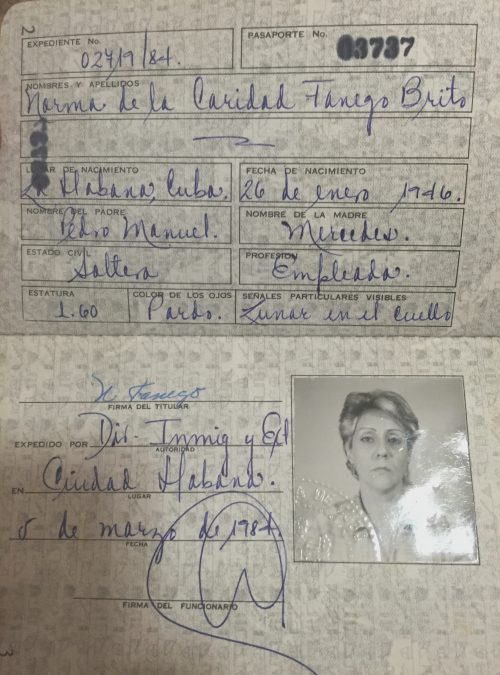 2
EXPEDIENTE No. PASAPORTE No.
02419/84. 03737
NOMBRES Y APELLIDOS
Norma de la Caridad Fanego Brito
LUGAR DE NACIMIENTO FECHA DE NACIMIENTO
La Habana, Cuba. 26 de enero 1946.
NOMBRE DEL PADRE NOMBRE DE LA MADRE
Pedro Manuel. Mercedes.
ESTADO CIVIL PROFESION
Soltera Empleada.
ESTATURA COLOR DE LOS OJOS SEÑALES PARTICULARES VISIBLES
1.60 Pardo. Lunar en el cuello
N Fanego
FIRMA DEL TITULAR
EXPEDIDO POR Dir. Inmig y Ext
AUTORIDAD
EN Ciudad Habana.
LUGAR
5 de marzo de 1984.
FECHA
FIRMA DEL FUNCIONARIO
3